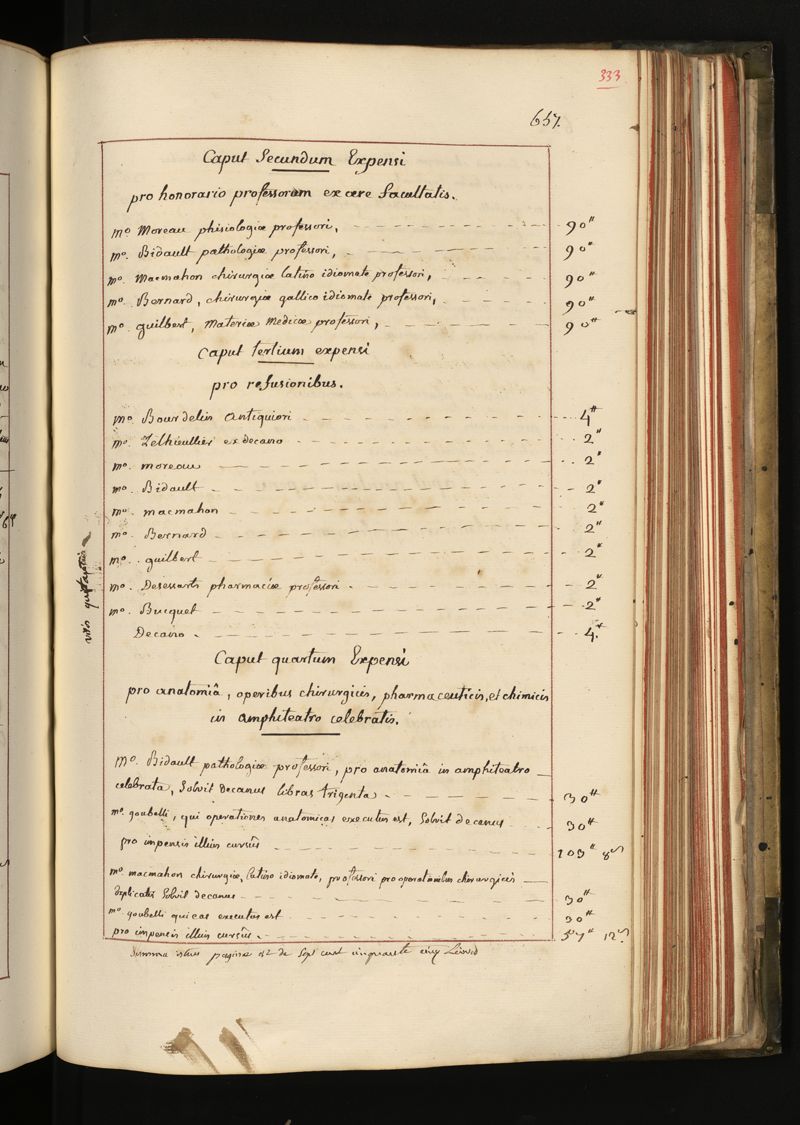 333
657.
Caput Secundum Expensi
pro honorario professorum ex aere facultatis.
mo Moreau phisiologiæ professori, 90"
mo. Bidault pathologiæ professori, 90"
mo. Macmahon chirurgiæ latino idiomate professori, 90"
mo. Bernard, chirurgiæ gallico idiomate professori, 90"
mo. guilbert, Materiæ Medicæ professori, 90"
Caput tertium expensi
pro refusionibus.
mo. Bourdelin Antiquiori 4"
mo. Lethieullier ex decano 2"
mo. moreau 2"
mo. Bidault 2"
mo. macmahon 2"
mo. Bernard 2"
mo. guilbert 2"
mo. Desessarts pharmaciæ professori. 2"
mo. Bucquet 2"
Decano. 4"
Caput quartum Expensi
pro anatomiâ, operibus chirurgicis, pharmaceuticis, et chimicis
in amphiteatro celebratis.
Mo. Bidault pathologiæ professori, pro anatomiâ in amphiteatro
celebrata, Solvit decanus libras triginta 30"
mo. goubelli, qui operationes anatomicas executus est, Solvit decanus 30"
pro impensis illius cursûs 103" 8s
mo. macmahon chirurgiæ, latino idiomate, professori pro operationibus chirurgicis
Solvit decanus 30"
mo. goubelli qui eas executus est 30"
pro impensis illius cursûs. 57" 12s
Summa paginæ est de Sept cent cinquante cinq